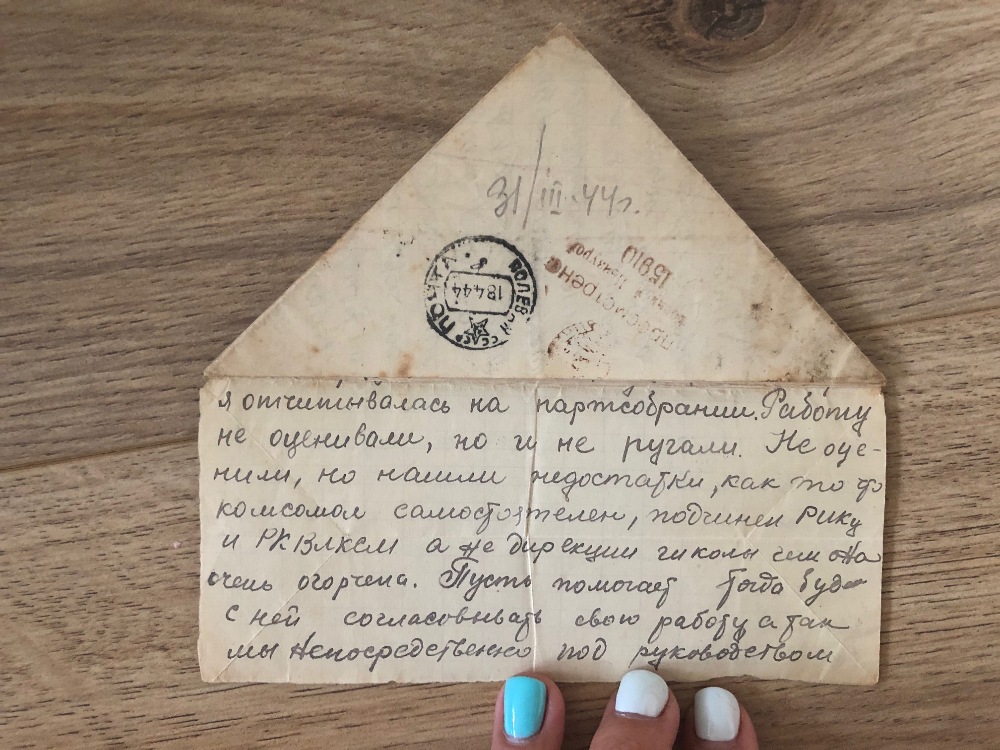 31/III.44г.
ПОЛЕВАЯ ПОЧТА
18.4.44
СССР
Просмотрено
Военной Цензурой
15810
я отчитывалась на партсобрании. Работу
не оценивали, но и не ругали. Не оце-
нили, но нашли недостатки, как то
комсомол самостоятелен, подчинен Рику
и РКВЛКСМ а не дирекции школы чем она
очень огорчена. Пусть помогает тогда буд
с ней согласовывать свою работу а так
мы непосредственно под руководством